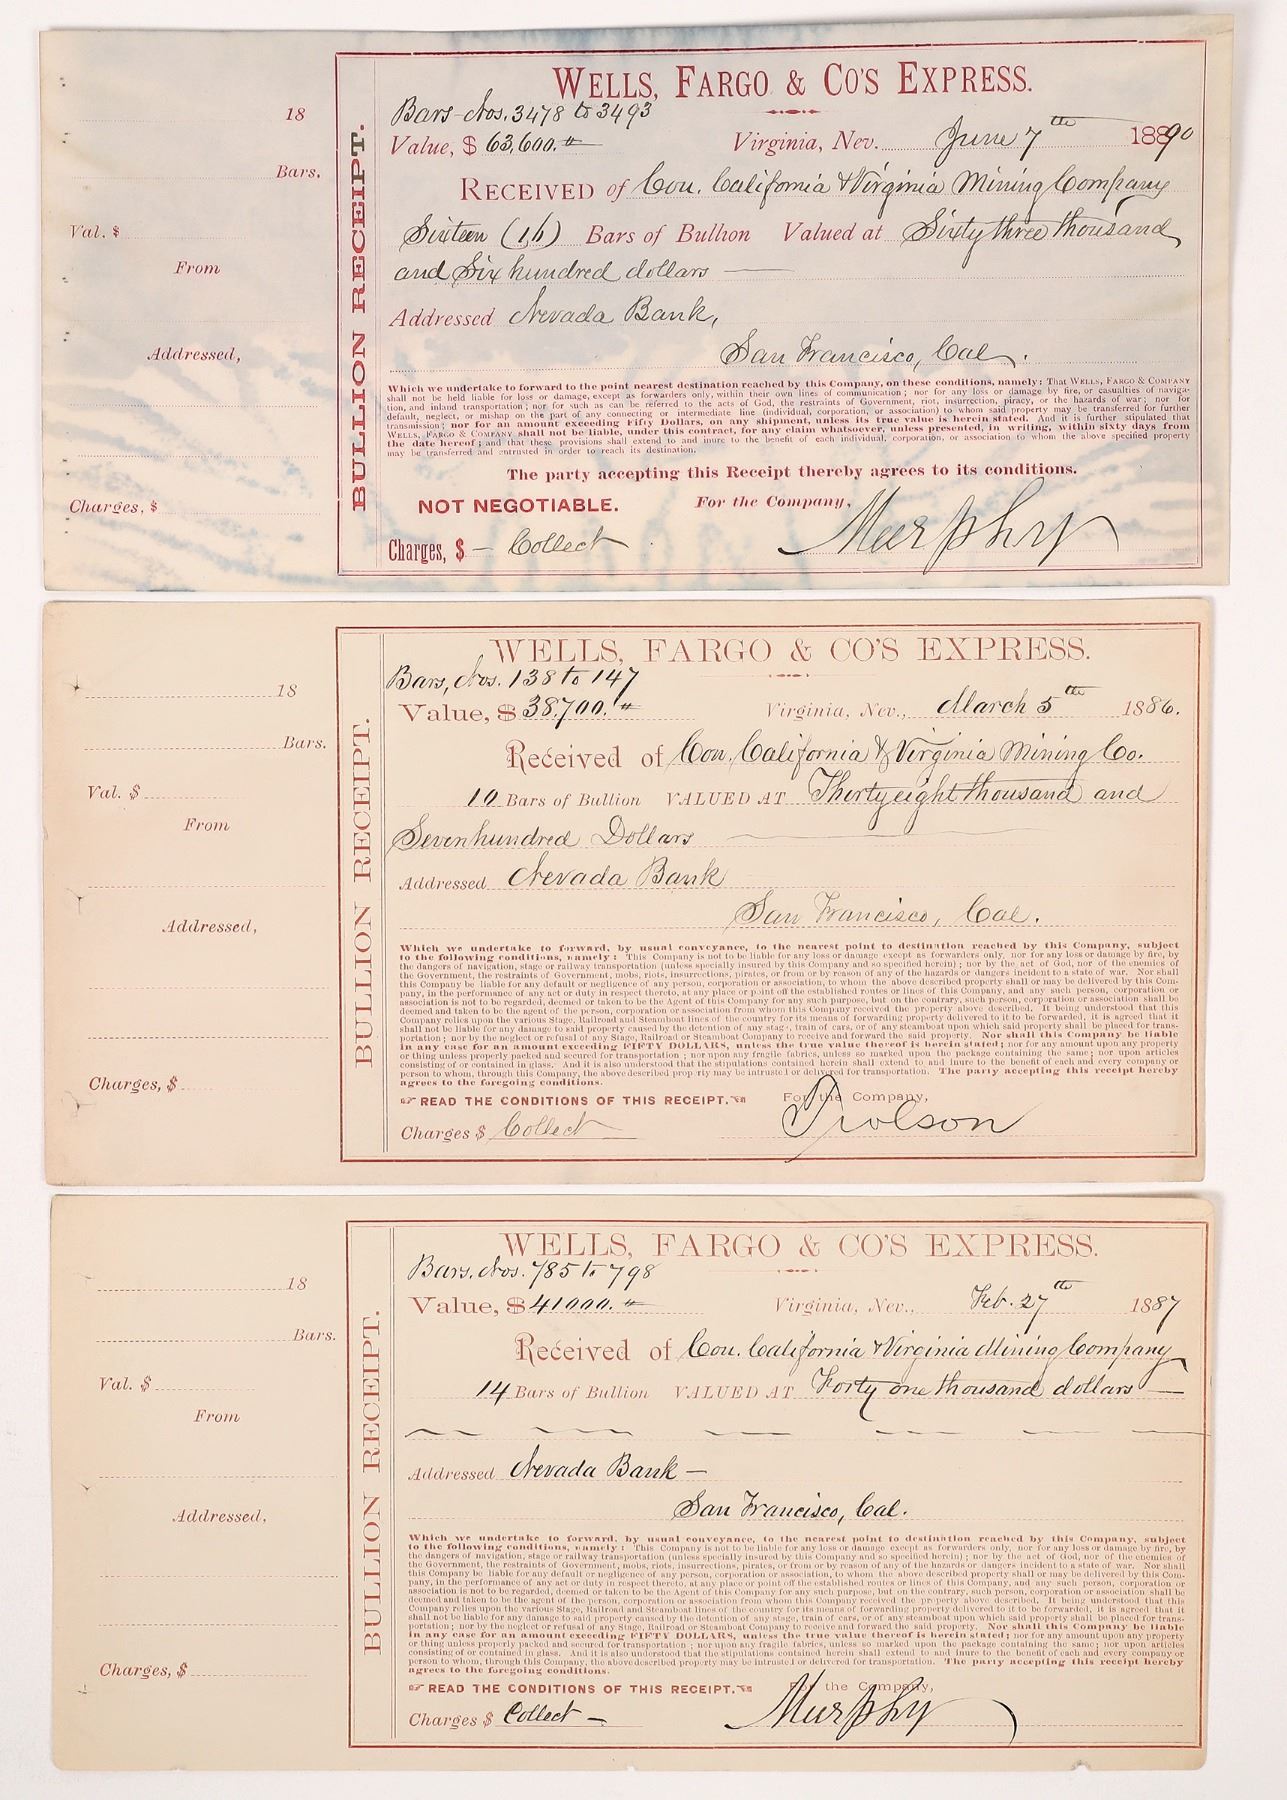 WELLS, FARGO & CO'S EXPRESS.
Bars Nos. 3478 to 3493
18
Value, $ 63,600. Virginia, Nev. June 7th 1890
Bars.
RECEIVED of Con. California & Virginia Mining Company
Val. $
Sixteen (16) Bars of Bullion Valued at Sixty three thousand
From
and Six hundred dollars
Addressed Nevada Bank,
Addressed,
San Francisco, Cal.
BULLION RECEIPT.
Which we undertake to forward to the point nearest destination reached by this Company, on these conditions, namely: That WELLS, FARGO & COMPANY
shall not be held liable for loss or damage, except as forwarders only, within their own lines of communication; nor for any loss or damage by fire, or casualties of naviga-
tion, and inland transportation; nor for such as can be referred to the acts of God, the restraints of Government, riot, insurrection, piracy, or the hazards of war; nor for
default, neglect, or mishap on the part of any connecting or intermediate line (individual, corporation, or association) to whom said property may be transferred for further
transmission; nor for an amount exceeding Fifty Dollars, on any shipment, unless its true value is herein stated. And it is further stipulated that
WELLS, FARGO & COMPANY shall not be liable, under this contract, for any claim whatsoever, unless presented, in writing, within sixty days from
the date hereof; and that these provisions shall extend to and inure to the benefit of each individual, corporation, or association to whom the above specified property
may be transferred and entrusted in order to reach its destination.
The party accepting this Receipt thereby agrees to its conditions.
Charges, $
NOT NEGOTIABLE. For the Company,
Charges, $ - Collect Murphy
WELLS, FARGO & CO'S EXPRESS.
Bars, Nos. 138 to 147
18
Value, $ 38,700. Virginia, Nev., March 5th 1886.
Bars.
Received of Con. California & Virginia Mining Co.
Val. $
10 Bars of Bullion VALUED AT Thirty eight thousand and
From
Seven hundred Dollars
Addressed Nevada Bank
Addressed,
San Francisco, Cal.
BULLION RECEIPT.
Which we undertake to forward, by usual conveyance, to the nearest point to destination reached by this Company, subject
to the following conditions, namely: This Company is not to be liable for any loss or damage except as forwarders only, nor for any loss or damage by fire, by
the dangers of navigation, stage or railway transportation (unless specially insured by this Company and so specified herein); nor by the act of God, nor of the enemies of
the Government, the restraints of Government, mobs, riots, insurrections, pirates, or from or by reason of any of the hazards or dangers incident to a state of war. Nor shall
this Company be liable for any default or negligence of any person, corporation or association, to whom the above described property shall or may be delivered by this Com-
pany, in the performance of any act or duty in respect thereto, at any place or point off the established routes or lines of this Company, and any such person, corporation or
association is not to be regarded, deemed or taken to be the Agent of this Company for any such purpose, but on the contrary, such person, corporation or association shall be
deemed and taken to be the agent of the person, corporation or association from whom this Company received the property above described. It being understood that this
Company relies upon the various Stage, Railroad and Steamboat lines of the country for its means of forwarding property delivered to it to be forwarded, it is agreed that it
shall not be liable for any damage to said property caused by the detention of any stage, train of cars, or of any steamboat upon which said property shall be placed for trans-
portation; nor by the neglect or refusal of any Stage, Railroad or Steamboat Company to receive and forward the said property. Nor shall this Company be liable
in any case for an amount exceeding FIFTY DOLLARS, unless the true value thereof is herein stated; nor for any amount upon any property
or thing unless properly packed and secured for transportation; nor upon any fragile fabrics, unless so marked upon the package containing the same; nor upon articles
consisting of or contained in glass. And it is also understood that the stipulations contained herein shall extend to and inure to the benefit of each and every company or
person to whom, through this Company, the above described property may be intrusted or delivered for transportation. The party accepting this receipt hereby
agrees to the foregoing conditions.
Charges, $
READ THE CONDITIONS OF THIS RECEIPT. For the Company,
Charges $ Collect
WELLS, FARGO & CO'S EXPRESS.
Bars, Nos. 785 to 798
18
Value, $ 41000. Virginia, Nev., Feb. 27th 1887
Bars.
Received of Con. California & Virginia Mining Company
Val. $
14 Bars of Bullion VALUED AT Forty one thousand dollars
From
Addressed Nevada Bank
Addressed,
San Francisco, Cal.
BULLION RECEIPT.
Which we undertake to forward, by usual conveyance, to the nearest point to destination reached by this Company, subject
to the following conditions, namely: This Company is not to be liable for any loss or damage except as forwarders only, nor for any loss or damage by fire, by
the dangers of navigation, stage or railway transportation (unless specially insured by this Company and so specified herein); nor by the act of God, nor of the enemies of
the Government, the restraints of Government, mobs, riots, insurrections, pirates, or from or by reason of any of the hazards or dangers incident to a state of war. Nor shall
this Company be liable for any default or negligence of any person, corporation or association, to whom the above described property shall or may be delivered by this Com-
pany, in the performance of any act or duty in respect thereto, at any place or point off the established routes or lines of this Company, and any such person, corporation or
association is not to be regarded, deemed or taken to be the Agent of this Company for any such purpose, but on the contrary, such person, corporation or association shall be
deemed and taken to be the agent of the person, corporation or association from whom this Company received the property above described. It being understood that this
Company relies upon the various Stage, Railroad and Steamboat lines of the country for its means of forwarding property delivered to it to be forwarded, it is agreed that it
shall not be liable for any damage to said property caused by the detention of any stage, train of cars, or of any steamboat upon which said property shall be placed for trans-
portation; nor by the neglect or refusal of any Stage, Railroad or Steamboat Company to receive and forward the said property. Nor shall this Company be liable
in any case for an amount exceeding FIFTY DOLLARS, unless the true value thereof is herein stated; nor for any amount upon any property
or thing unless properly packed and secured for transportation; nor upon any fragile fabrics, unless so marked upon the package containing the same; nor upon articles
consisting of or contained in glass. And it is also understood that the stipulations contained herein shall extend to and inure to the benefit of each and every company or
person to whom, through this Company, the above described property may be intrusted or delivered for transportation. The party accepting this receipt hereby
agrees to the foregoing conditions.
Charges, $
READ THE CONDITIONS OF THIS RECEIPT. For the Company,
Charges $ Collect Murphy